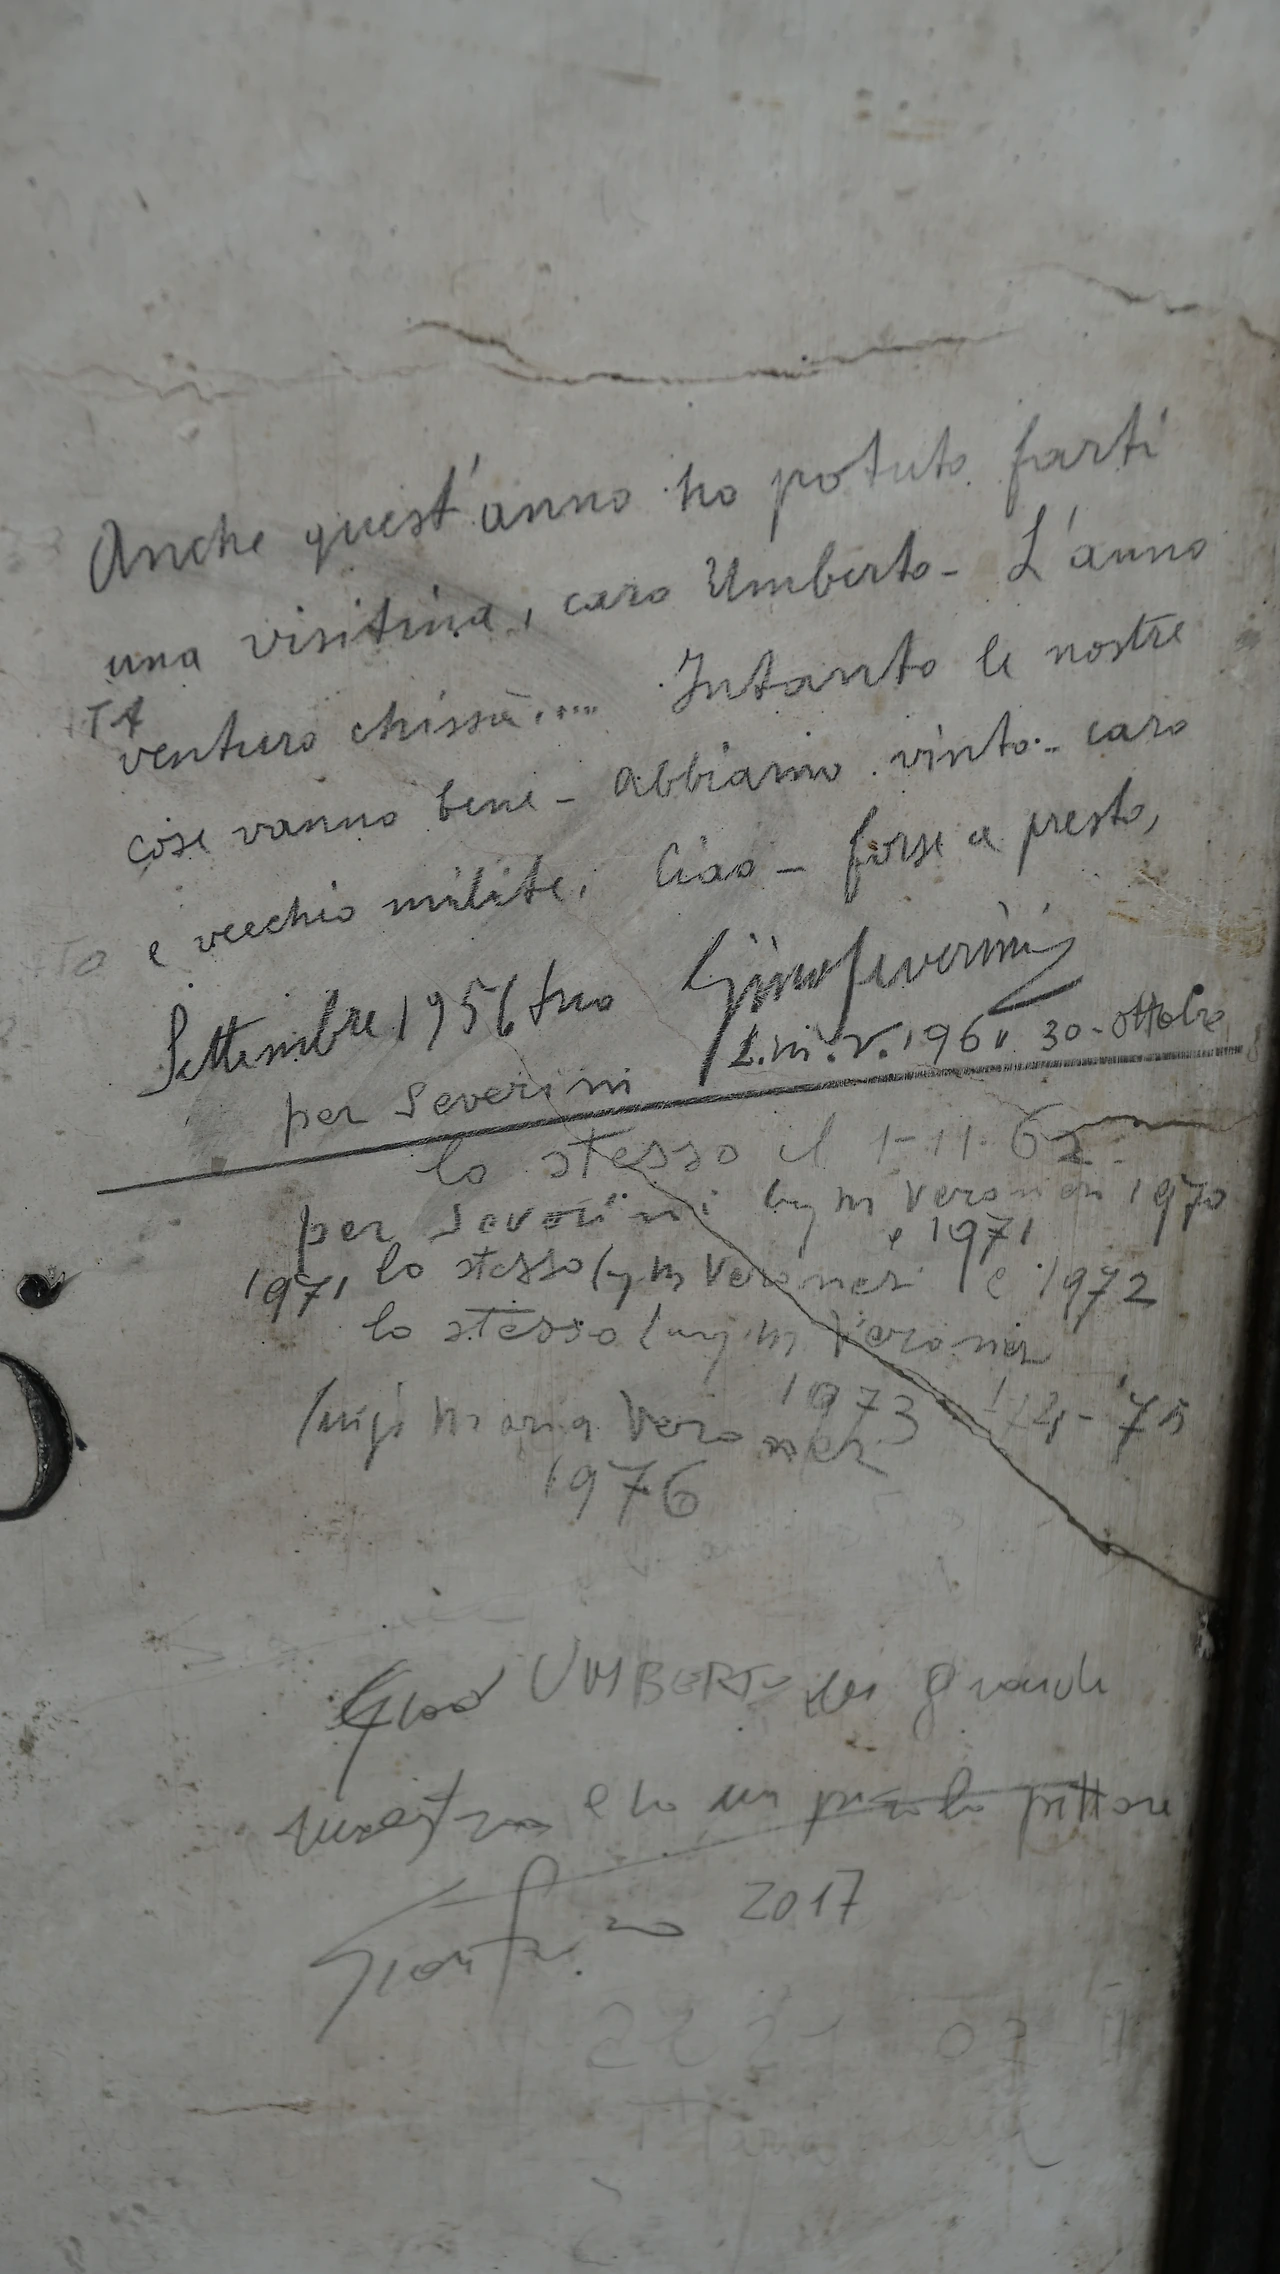 Anche quest'anno ho potuto farti
una visitina, caro Umberto - L'anno
TA
venturo chissà..... Intanto le nostre
cose vanno bene - abbiamo vinto.. caro
e vecchio milite. Ciao - forse a presto,
TO
Settembre 1956 tuo Gino Severini
per Severini L.m.V. 1961 30-ottobre
lo stesso il 1-11-62
per Severini Veronesi 1970
e 1971
1971 lo stesso Veronesi e 1972
lo stesso Luigi M Veronesi
1973 - '74 - '75
Luigi Maria Veronesi
1976
UMBERTO sei grande
maestro e io un piccolo pittore
2017